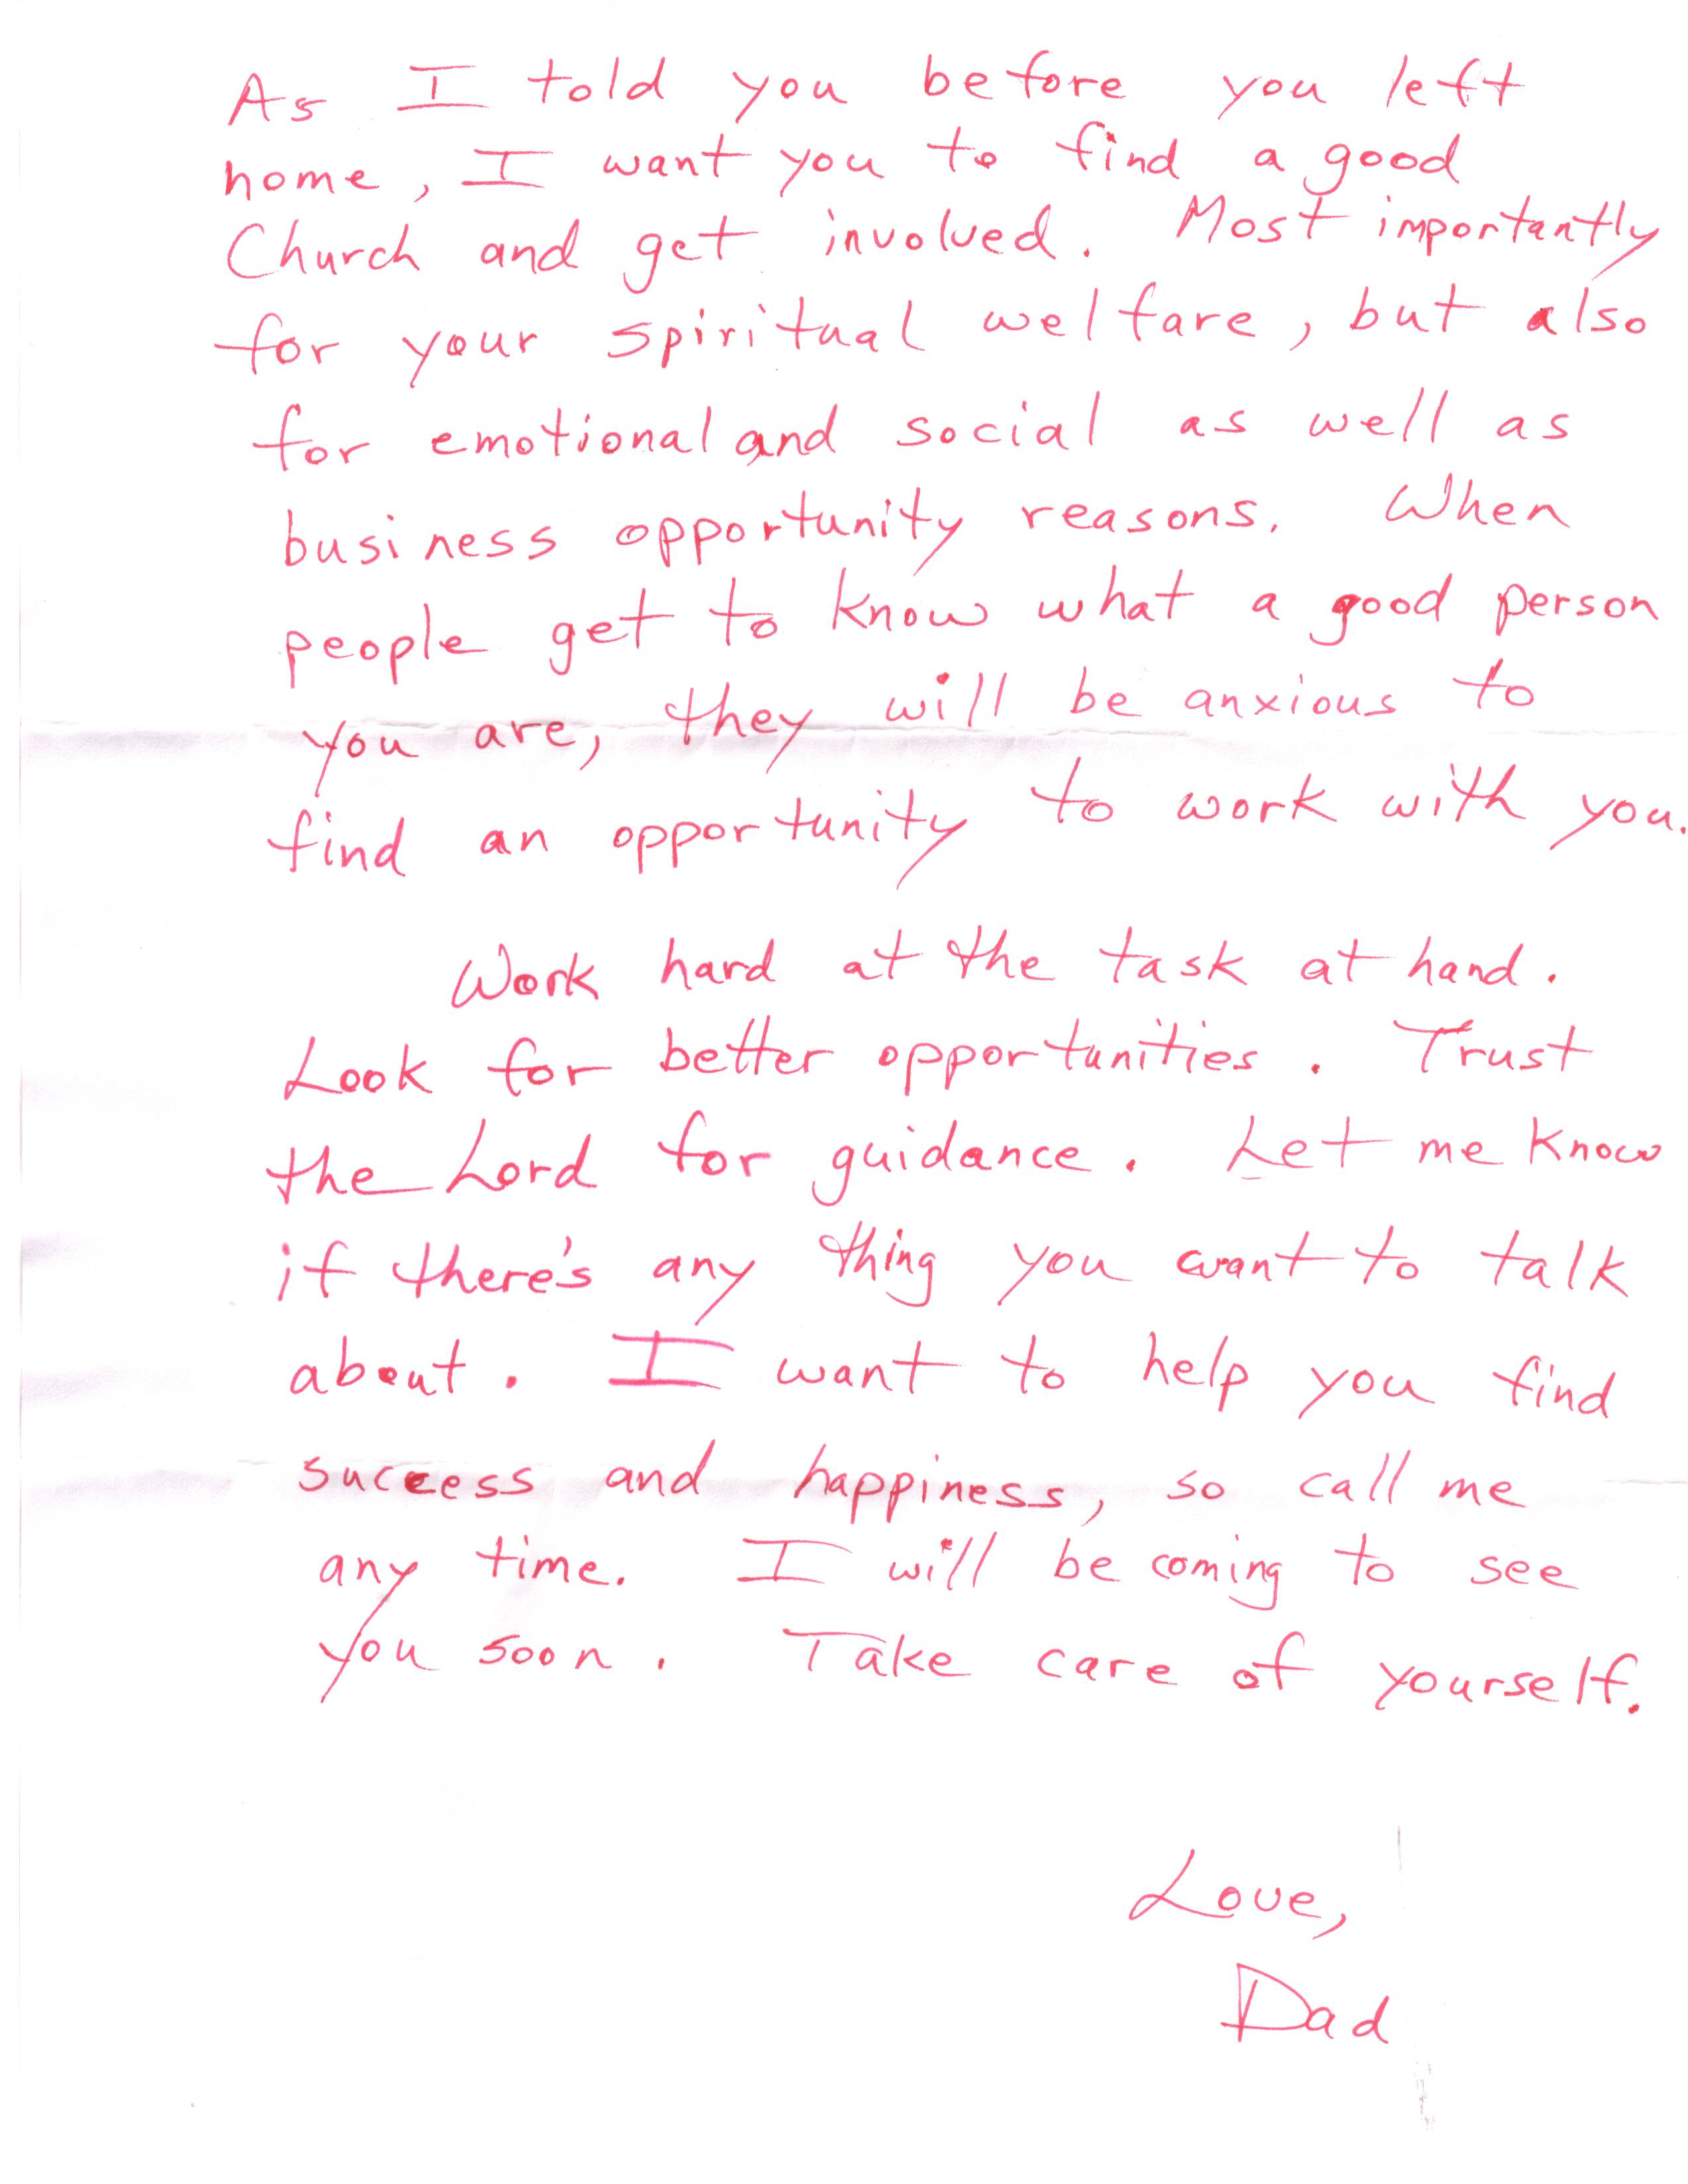 As I told you before you left
home, I want you to find a good
Church and get involved. Most importantly
for your spiritual welfare, but also
for emotional and social as well as
business opportunity reasons. When
people get to know what a good person
you are, they will be anxious to
find an opportunity to work with you.
Work hard at the task at hand.
Look for better opportunities. Trust
the Lord for guidance. Let me know
if there's any thing you want to talk
about. I want to help you find
success and happiness, so call me
any time. I will be coming to see
you soon. Take care of yourself.
Love,
Dad